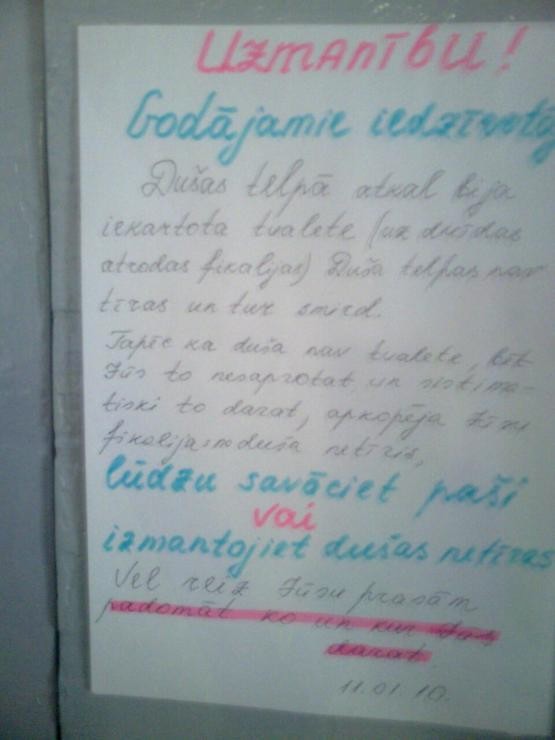 Uzmanību!
Godājamie iedzīvotāj
Dušas telpā atkal bija
iekartota tualete (uz drīdas
atrodas fikalijas) Duša telpas nav
tīras un tur smird.
Tapēc ka duša nav tualete, bet
Jūs to nesaprotat un sistima-
tiski to darat, apkopēja Jūsu
fikalijas no duša netīris,
lūdzu savāciet paši
vai
izmantojiet dušas netīras
Vel reiz Jūsu prasām
padomāt ko un kur Jūs
darat.
11.01.10.